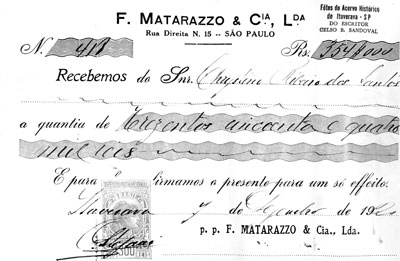 F. MATARAZZO & CIA, LDA
Rua Direita N. 15 -- SÃO PAULO
Fótos do Acervo Histórico
de Ituverava - SP
DO ESCRITOR
CELSO B. SANDOVAL
N. 418 Rs. 354$000
Recebemos do Snr. Ribeiro dos Santos
a quantia de Trezentos cincoenta e quatro
mil reis
E para firmamos a presente para um só effeito.
Ituverava 7 de de 192
300
p. p. F. MATARAZZO & Cia., Lda.